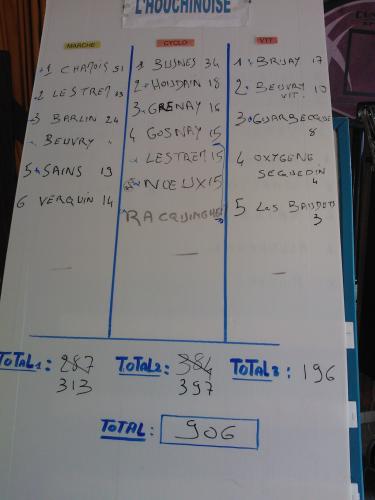 L'HOUCHINOISE
MARCHE
1 CHAMOIS 51
2 LESTREM 33
3 BARLIN 24
BEUVRY "
5 SAINS 19
6 VERQUIN 14
CYCLO
1 BUSNES 34
2 HOUDAIN 18
3 GRENAY 16
4 GOSNAY 15
LESTREM 15
NOEUX 15
RACQUINGHEM
VTT
1 BRUAY 17
2 BEUVRY 10
VTT.
3 GUARBECQUE
8
4 OXYGENE
SEQUEDIN
4
5 Les BAUDETS
3
TOTAL 1: 287
313
TOTAL 2: 384
397
TOTAL 3: 196
TOTAL: 906